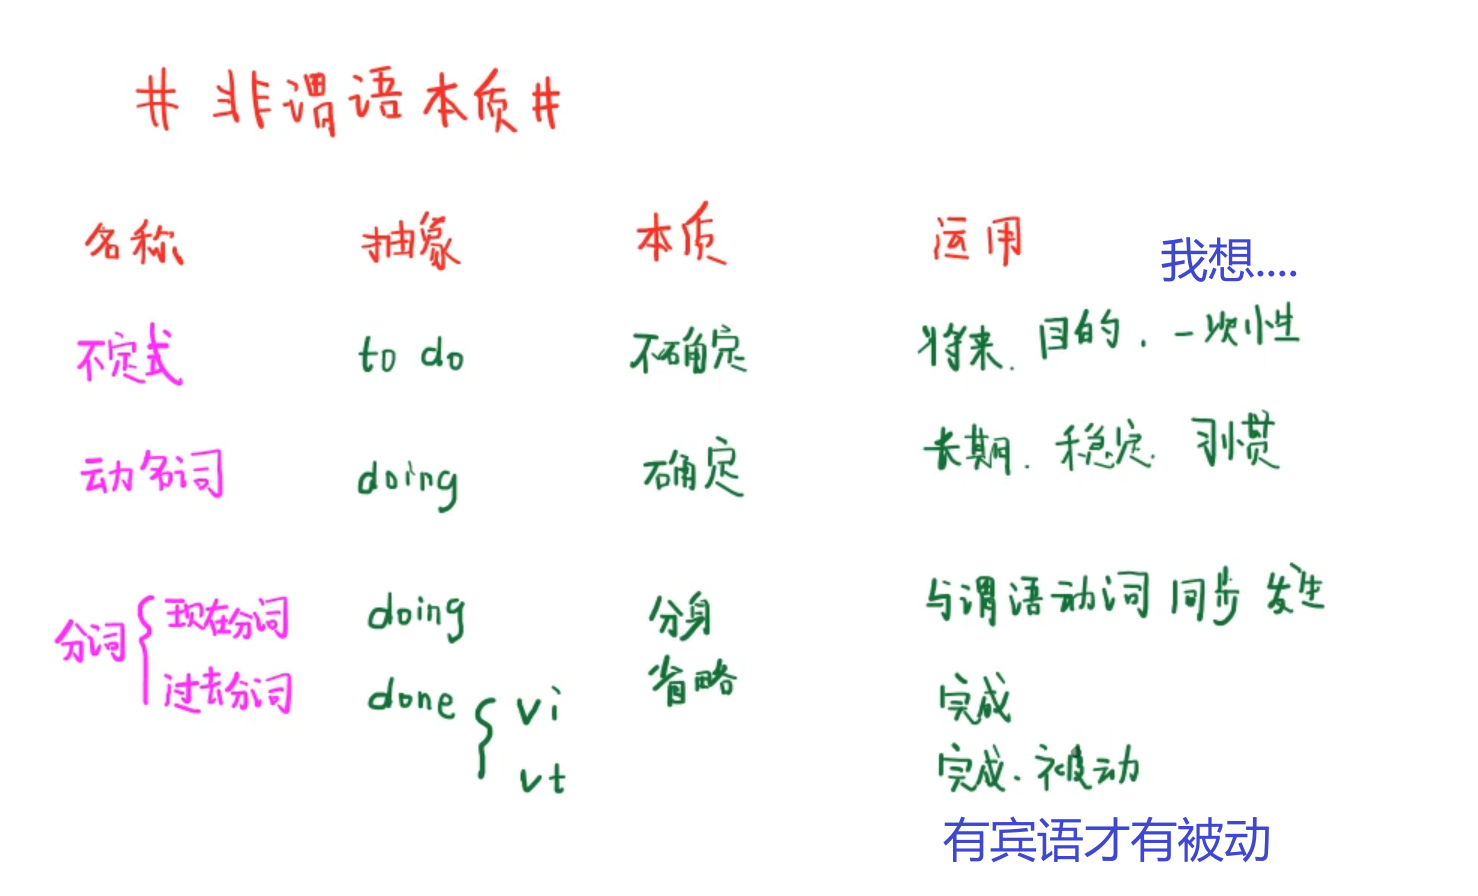 # 非谓语本质#
名称 抽象 本质 运用 我想....
不定式 to do 不确定 将来. 目的. 一次性
动名词 doing 确定 长期. 稳定. 习惯
分词 { 现在分词 doing 分身 与谓语动词同步发生
过去分词 done { vi 省略 完成
vt 完成. 被动
有宾语才有被动